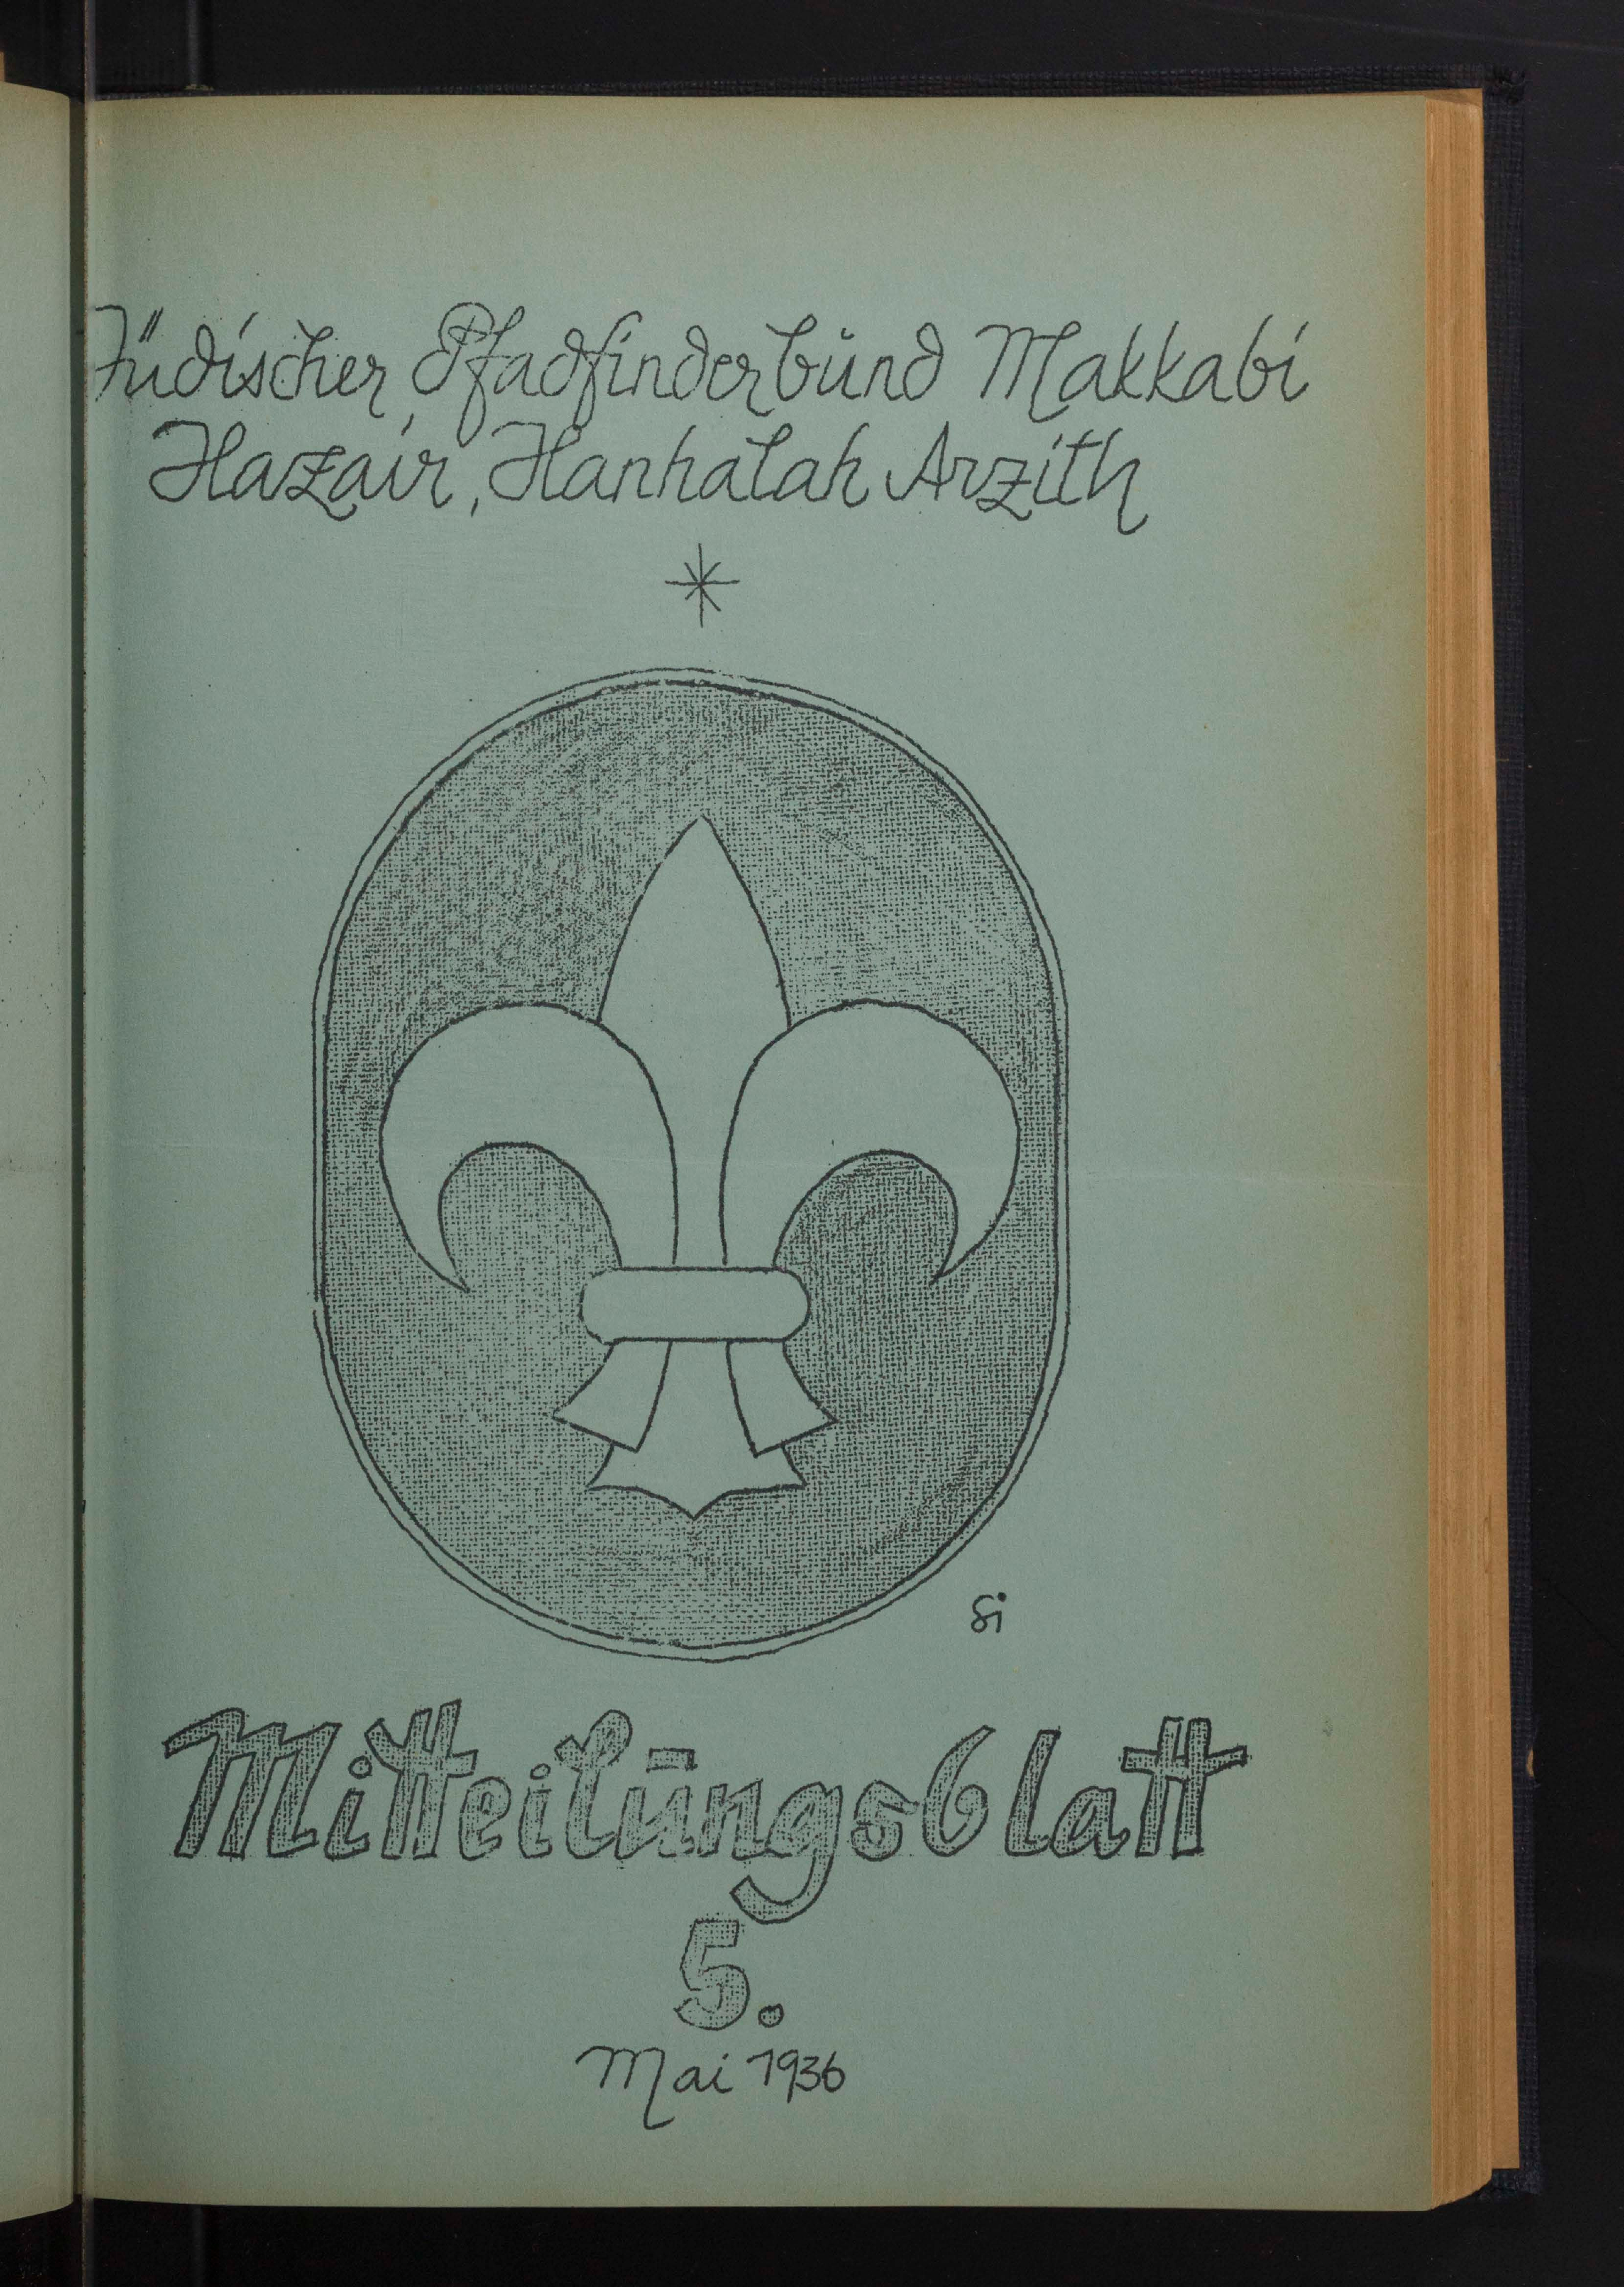 Jüdischer Pfadfinderbund Makkabi
Hazair, Hanhalah Arzith
Si
Mitteilungsblatt
5.
Mai 1936